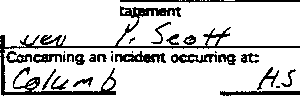 tatement
P. Scott
Concerning an incident occurring at:
Columb H.S